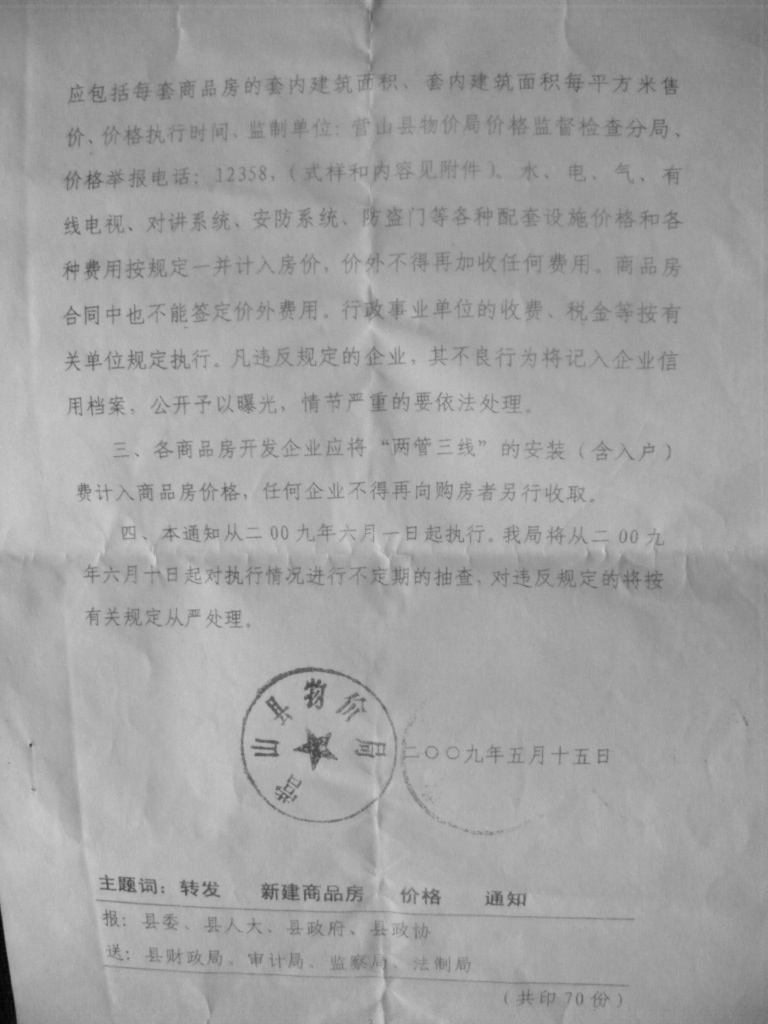 应包括每套商品房的套内建筑面积、套内建筑面积每平方米售
价、价格执行时间、监制单位：营山县物价局价格监督检查分局、
价格举报电话：12358，（式样和内容见附件）。水、电、气、有
线电视、对讲系统、安防系统、防盗门等各种配套设施价格和各
种费用按规定一并计入房价，价外不得再加收任何费用。商品房
合同中也不能签定价外费用。行政事业单位的收费、税金等按有
关单位规定执行。凡违反规定的企业，其不良行为将记入企业信
用档案，公开予以曝光，情节严重的要依法处理。
三、各商品房开发企业应将“两管三线”的安装（含入户）
费计入商品房价格，任何企业不得再向购房者另行收取。
四、本通知从二00九年六月一日起执行。我局将从二00九
年六月十日起对执行情况进行不定期的抽查，对违反规定的将按
有关规定从严处理。
营山县物价局
二〇〇九年五月十五日
主题词：转发 新建商品房 价格 通知
报：县委、县人大、县政府、县政协
送：县财政局、审计局、监察局、法制局
（共印70份）